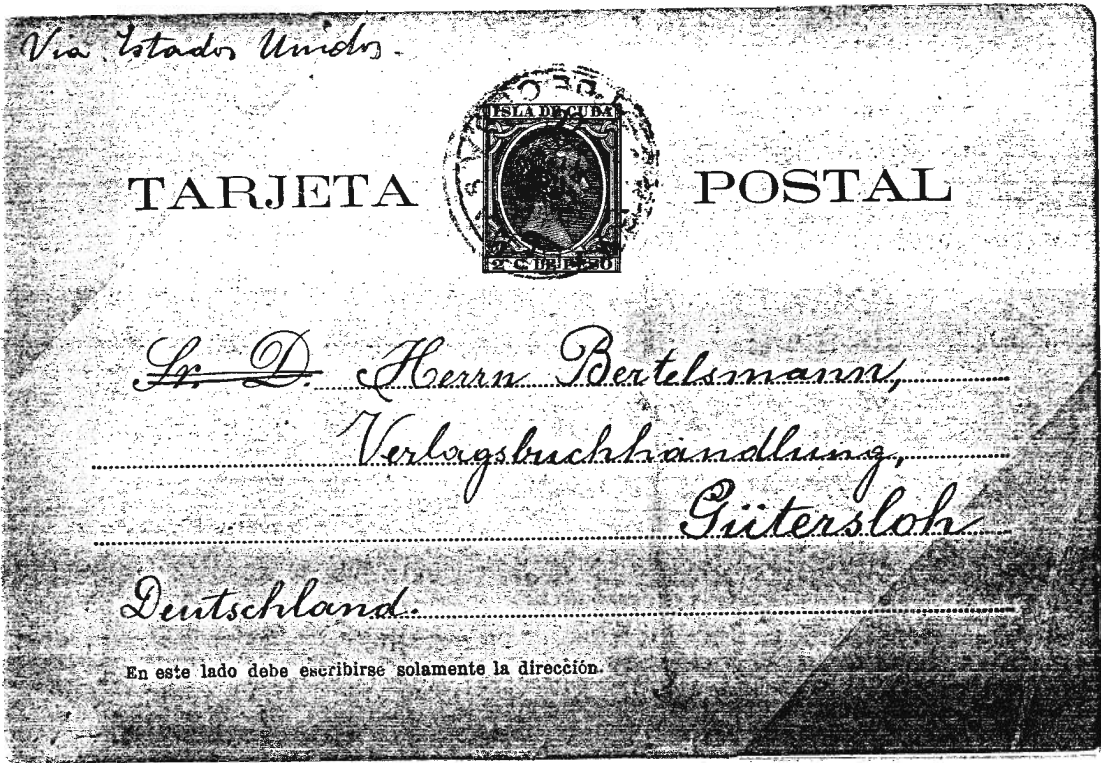 Via Estados Unidos.
ISLA DE CUBA
TARJETA POSTAL
2 C. DE PESO
Sr. D. Herrn Bertelsmann,
Verlagsbuchhandlung,
Gütersloh
Deutschland.
En este lado debe escribirse solamente la dirección.